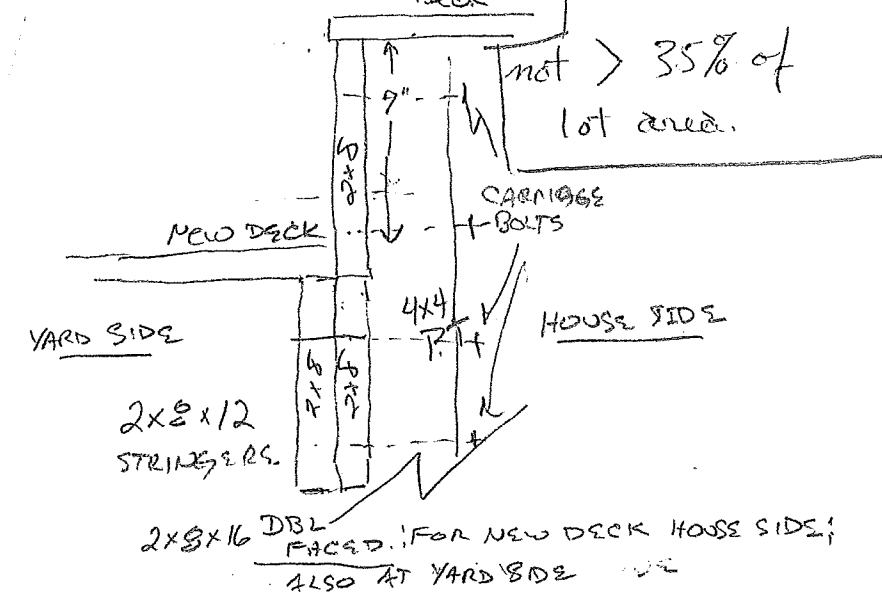 not > 35% of
lot area.
7"
2x8
CARRIAGE
BOLTS
NEW DECK
4x4
YARD SIDE
HOUSE SIDE
2x8
2x8
2x8x12
STRINGERS.
2x8x16 DBL
FACED. FOR NEW DECK HOUSE SIDE;
ALSO AT YARD SIDE